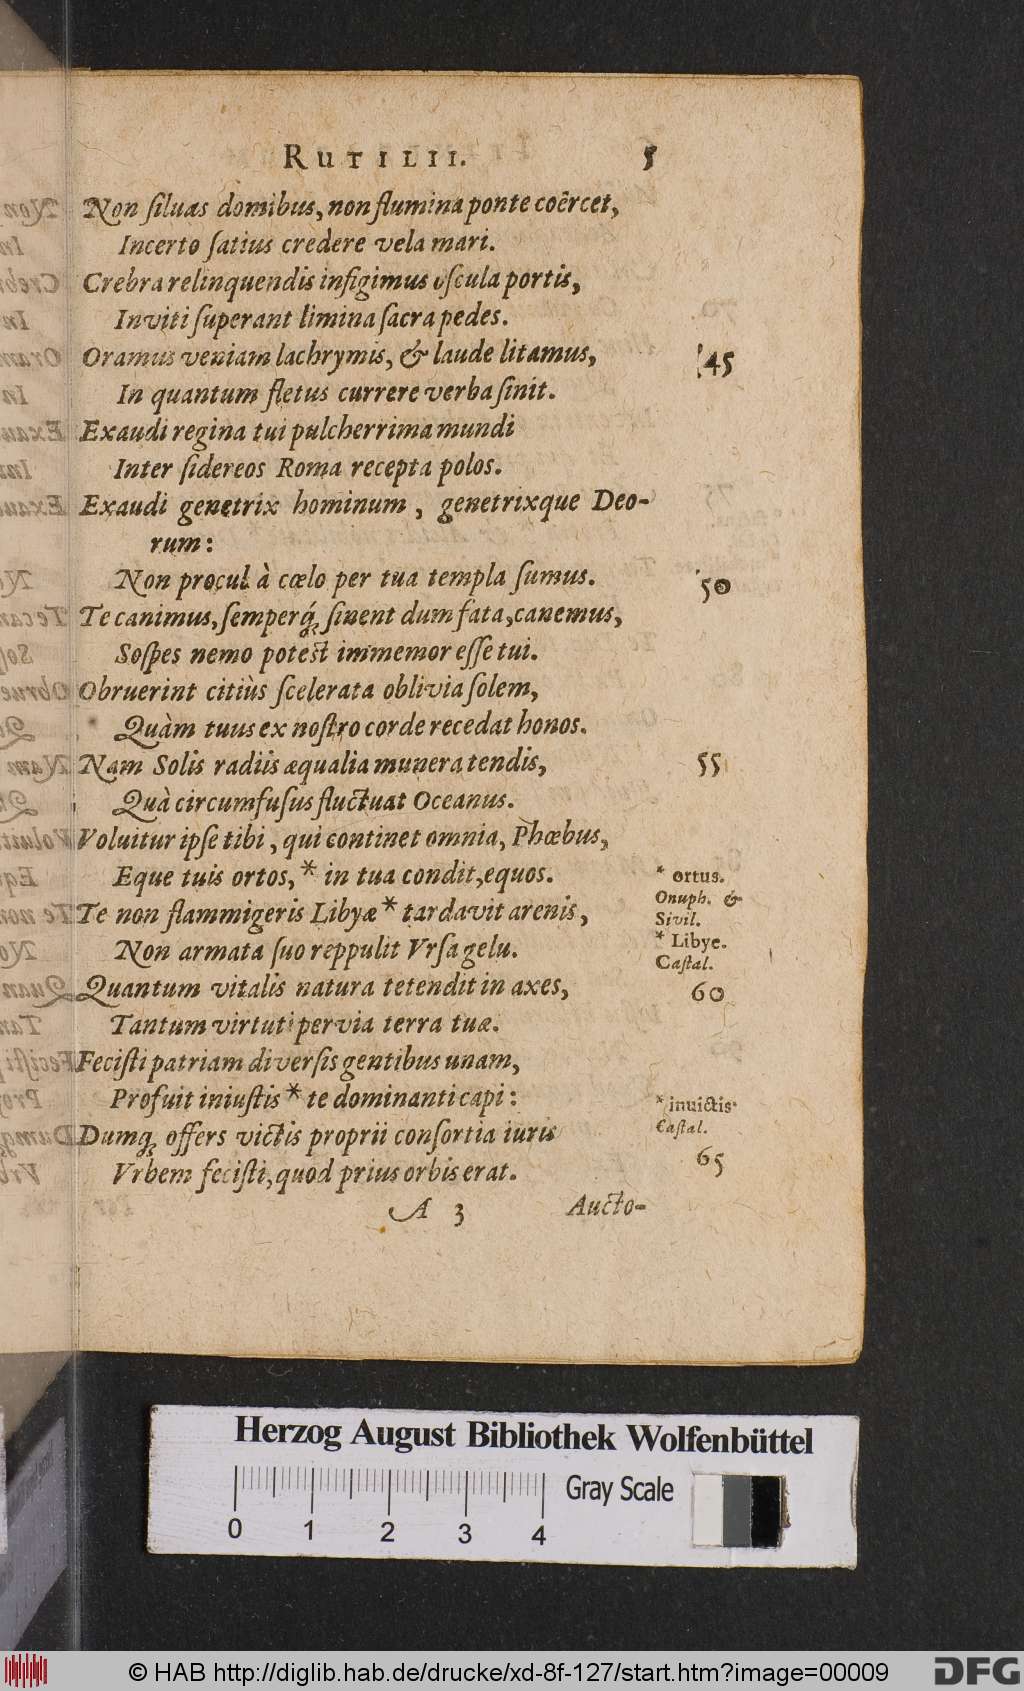 RUTILII. 5
Non ſiluas domibus, non flumina ponte coërcet,
Incerto ſatius credere vela mari.
Crebra relinquendis infigimus oſcula portis,
Inviti ſuperant limina ſacra pedes.
Oramus veniam lachrymis, & laude litamus, 45
In quantum fletus currere verba ſinit.
Exaudi regina tui pulcherrima mundi
Inter ſidereos Roma recepta polos.
Exaudi genetrix hominum, genetrixque Deo-
rum:
Non procul à cœlo per tua templa ſumus. 50
Te canimus, ſemperq́; ſinent dum fata, canemus,
Soſpes nemo poteſt immemor eſſe tui.
Obruerint citiùs ſcelerata oblivia ſolem,
Quàm tuus ex noſtro corde recedat honos.
Nam Solis radiis æqualia munera tendis, 55
Quà circumfuſus fluctuat Oceanus.
Voluitur ipſe tibi, qui continet omnia, Phœbus,
Eque tuis ortos, * in tua condit, equos. * ortus.
Onuph. &
Te non flammigeris Libyæ * tardavit arenis, Sivil.
Non armata ſuo reppulit Vrſa gelu. * Libye.
Caſtal.
Quantum vitalis natura tetendit in axes, 60
Tantum virtuti pervia terra tuæ.
Feciſti patriam diverſis gentibus unam,
Profuit iniuſtis * te dominanti capi: * inuictis
Dumq; offers victis proprii conſortia iuris Caſtal.
Vrbem feciſti, quod prius orbis erat. 65
A 3 Aucto-
Herzog August Bibliothek Wolfenbüttel
Gray Scale
0 1 2 3 4
© HAB http://diglib.hab.de/drucke/xd-8f-127/start.htm?image=00009 DFG